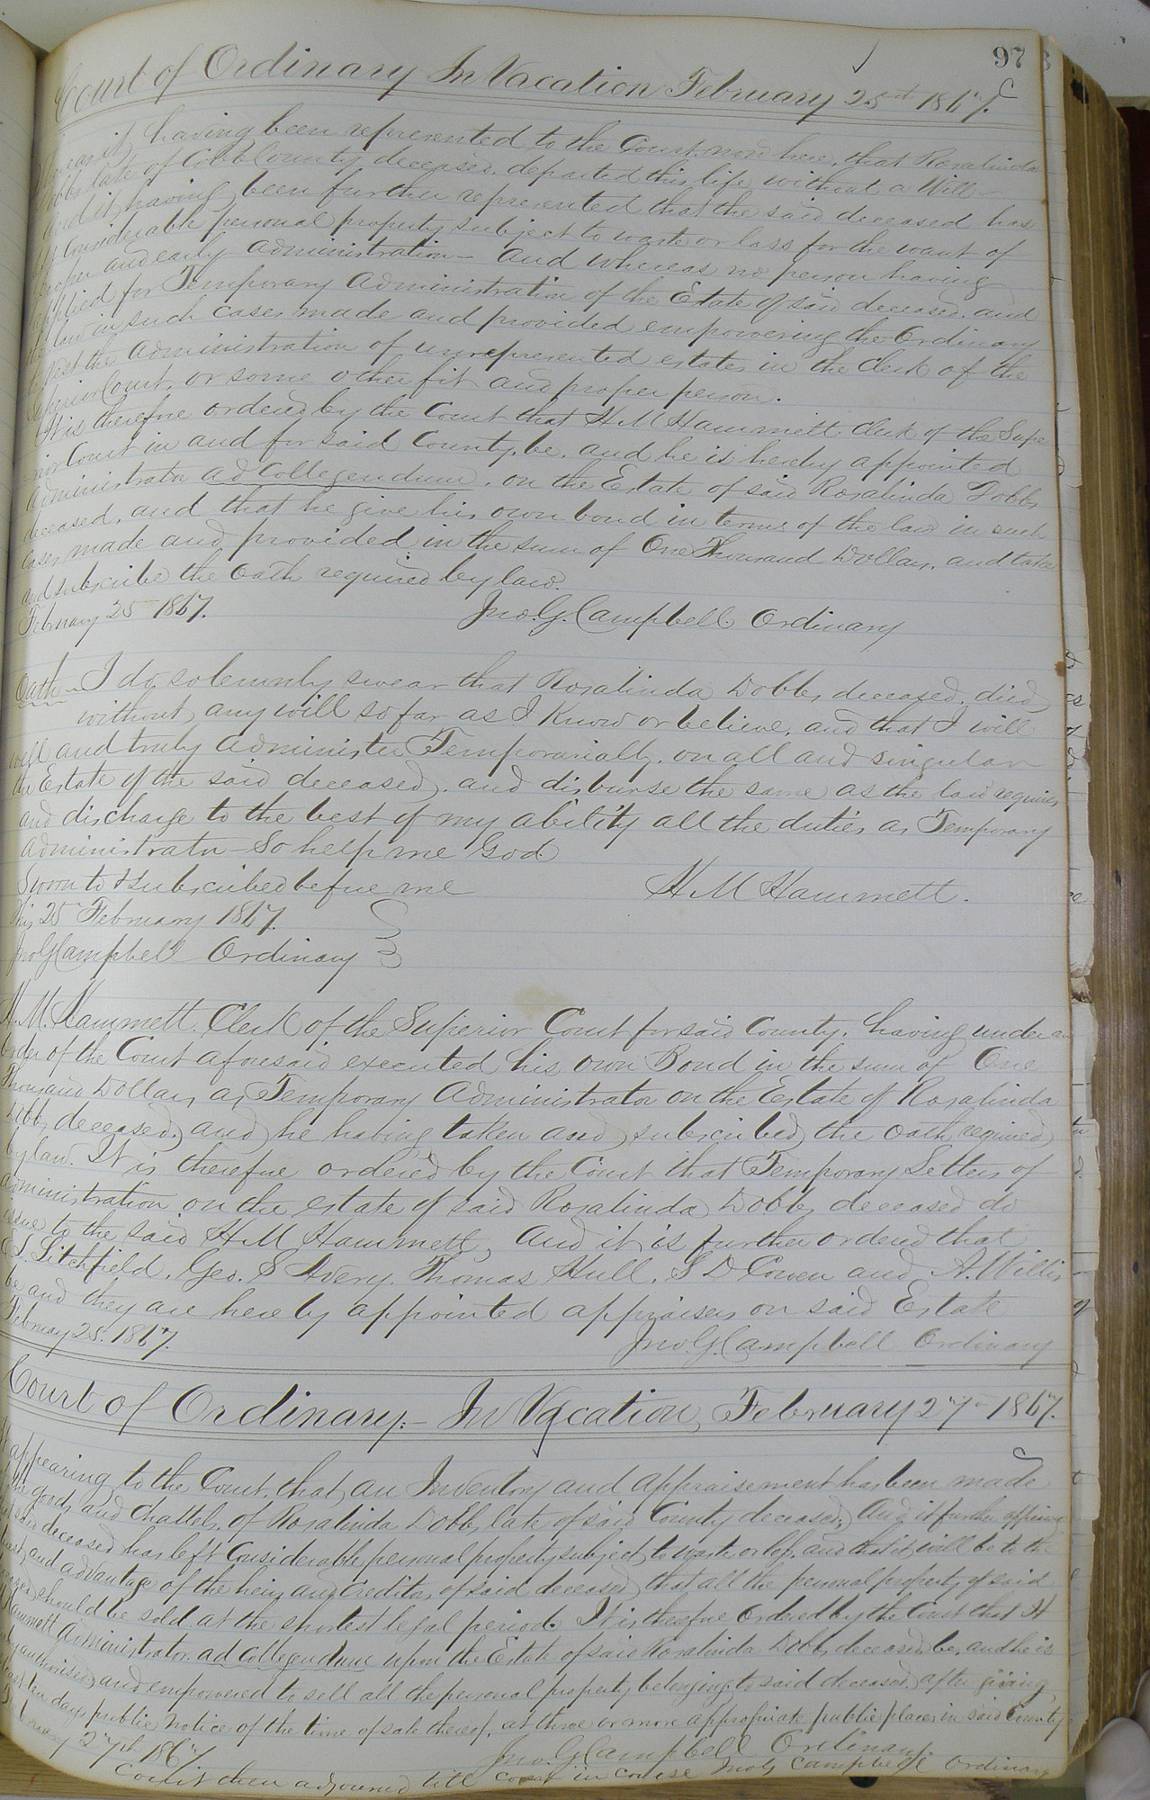 97
Court of Ordinary In Vacation February 25th 1867.
Whereas it having been represented to the Court now here, that Rosalinda
Dobbs late of Cobb County deceased, departed this life without a Will
and it having been further represented that the said deceased has
left considerable personal property subject to waste or loss for the want of
proper and early administration - and whereas no person having
applied for Temporary Administration of the Estate of said deceased, and
the law in such cases made and provided empowering the Ordinary
to vest the administration of unrepresented estates in the Clerk of the
Superior Court, or some other fit and proper person.
It is therefore ordered by the Court that H M Hammett Clerk of the Supe
rior Court in and for said County, be, and he is hereby appointed
Administrator ad Collegendum, on the Estate of said Rosalinda Dobbs
deceased, and that he give his own bond in terms of the law in such
cases made and provided in the sum of One Thousand Dollars, and take
and subscribe the Oath required by law.
February 25 1867. Jno. G. Campbell Ordinary
Oath - I do solemnly swear that Rosalinda Dobbs deceased, died
without any will so far as I know or believe, and that I will
well and truly administer Temporarially, on all and singular
the Estate of the said deceased, and disburse the same as the law requires
and discharge to the best of my ability all the duties as Temporary
Administrator - So help me God
Sworn to & subscribed before me H M Hammett.
this 25 February 1867.
Jno G Campbell Ordinary
H. M. Hammett Clerk of the Superior Court for said County, having under an
order of the Court aforesaid executed his own Bond in the sum of One
Thousand Dollars as Temporary Administrator on the Estate of Rosalinda
Dobbs deceased, and he having taken and subscribed the oath required
by law. It is therefore ordered by the Court that Temporary Letters of
administration on the estate of said Rosalinda Dobbs deceased do
issue to the said H M Hammett, And it is further ordered that
Litchfield, Geo. S Avery, Thomas Hull, S D Cowen and A. Willis
be and they are hereby appointed appraisers on said Estate
February 25. 1867. Jno. G. Campbell Ordinary
Court of Ordinary - In Vacation, February 27 - 1867.
appearing to the Court, that an Inventory and appraisement has been made
of the goods and chattels of Rosalinda Dobbs late of said County deceased, And it further appearing
that said deceased has left Considerable personal property subject to waste or loss, and that it will be to the
interest and advantage of the heirs and creditors of said deceased that all the personal property of said
deceased should be sold at the shortest legal period. It is therefore Ordered by the Court that H
Hammett Administrator ad Collegendum upon the Estate of said Rosalinda Dobbs deceased be, and he is
authorised and empowered to sell all the personal property belonging to said deceased, after giving
ten days public notice of the time of sale thereof, at three or more appropriate public places in said County
February 27th 1867 Jno. G Campbell Ordinary
Court then adjourned till court in course Jno G Campbell Ordinary